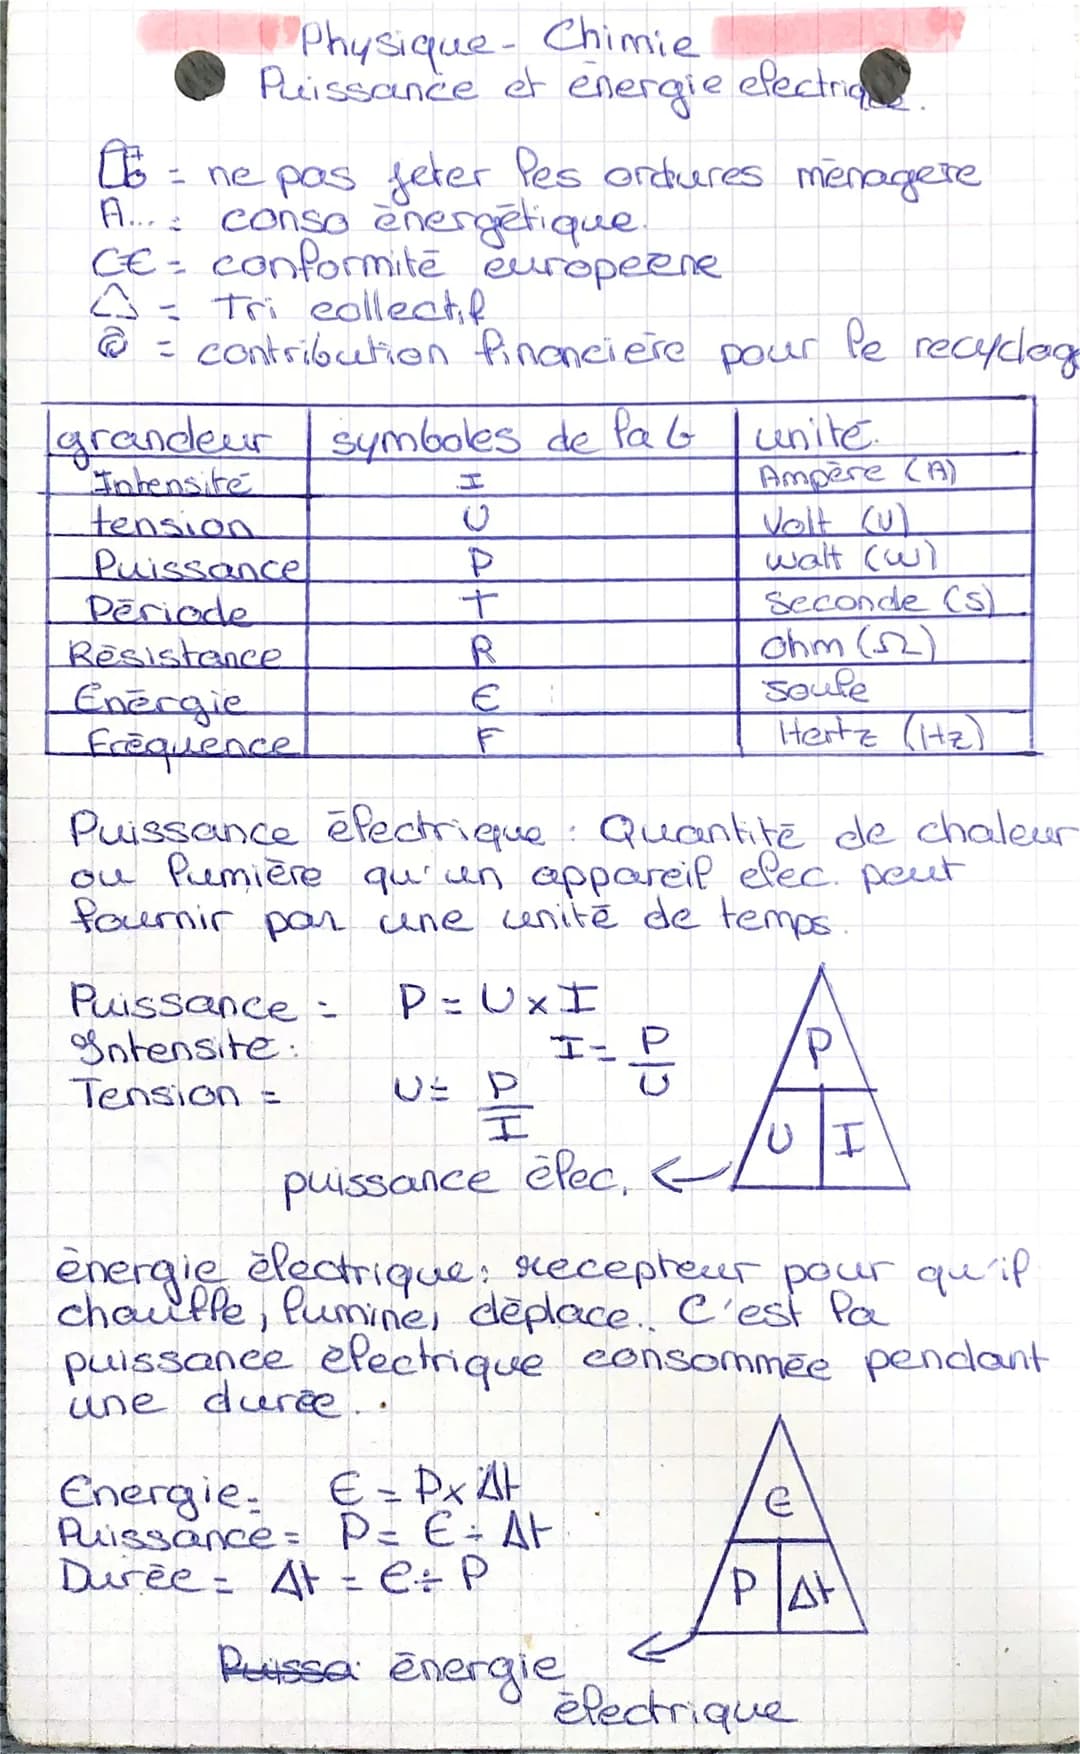 Physique - Chimie
Puissance et énergie electrique.
= ne pas jeter les ordures ménagere
A... : conso énergétique.
CE = conformité europeene
= Tri collectif
= contribution financiere pour le recyclag
grandeur symboles de la G unité.
Intensité I Ampère (A)
tension U Volt (V)
Puissance P Watt (W)
Période T Seconde (S)
Résistance R Ohm (Ω)
Énergie E Joule
Fréquence F Hertz (Hz)
Puissance électrique : Quantité de chaleur
ou lumière qu'un appareil elec. peut
fournir par une unité de temps.
Puissance = P = U x I
Intensite : I = P/U
Tension = U = P/I
P
U I
puissance élec.
énergie électrique : recepteur pour qu'il
chauffe, lumine, déplace.. C'est la
puissance électrique consommée pendant
une durée..
Energie = E = P x Δt
Puissance = P = E ÷ Δt
Durée = Δt = e ÷ P
E
P Δt
Puissa énergie
électrique